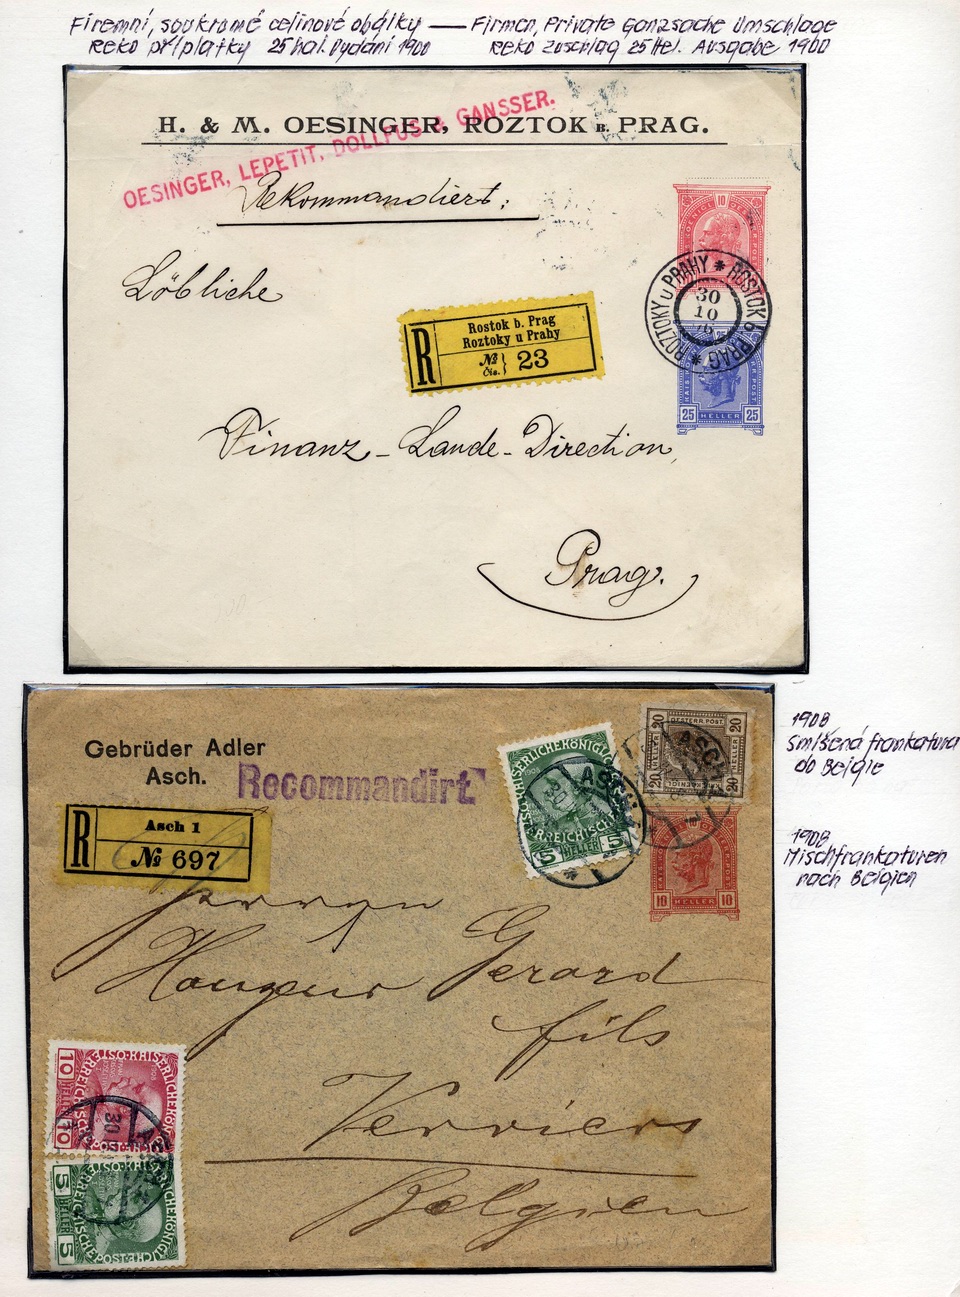 Firemní, soukromé celinové obálky — Firmen, Private Ganzsache Umschlage
Reko příplatky 25 hal. Vydání 1900 Reko zuschlag 25 Hel. Ausgabe 1900
H. & M. OESINGER, ROZTOK B. PRAG.
OESINGER, LEPETIT, DOLLFUS & GANSSER.
Rekommandiert:
10
ROZTOKY u PRAHY * ROSTOK b. PRAG *
30
10
Löbliche
R
Rostok b. Prag
Roztoky u Prahy
№ Čis. 23
25 HELLER 25
Finanz-Lande-Direction,
Prag.
Gebrüder Adler
Asch.
Recommandirt.
R
Asch 1
№ 697
KAISERLICHE KÖNIGL
ÖSTERREICHISCHE
5 HELLER 5
ASCH
20 OESTERR. POST. 20
20 20
ASCH
10 HELLER 10
Herren
Hauzeur Gerard
fils
Verviers
Belgien
10 HELLER 10
KAISERLICHE KÖNIGL
ÖSTERREICHISCHE POST
30
ASCH
5 HELLER 5
KAISERLICHE KÖNIGL
ÖSTERREICHISCHE POST
1908
Smíšená frankatura
do Belgie
1908
Mischfrankaturen
nach Belgien